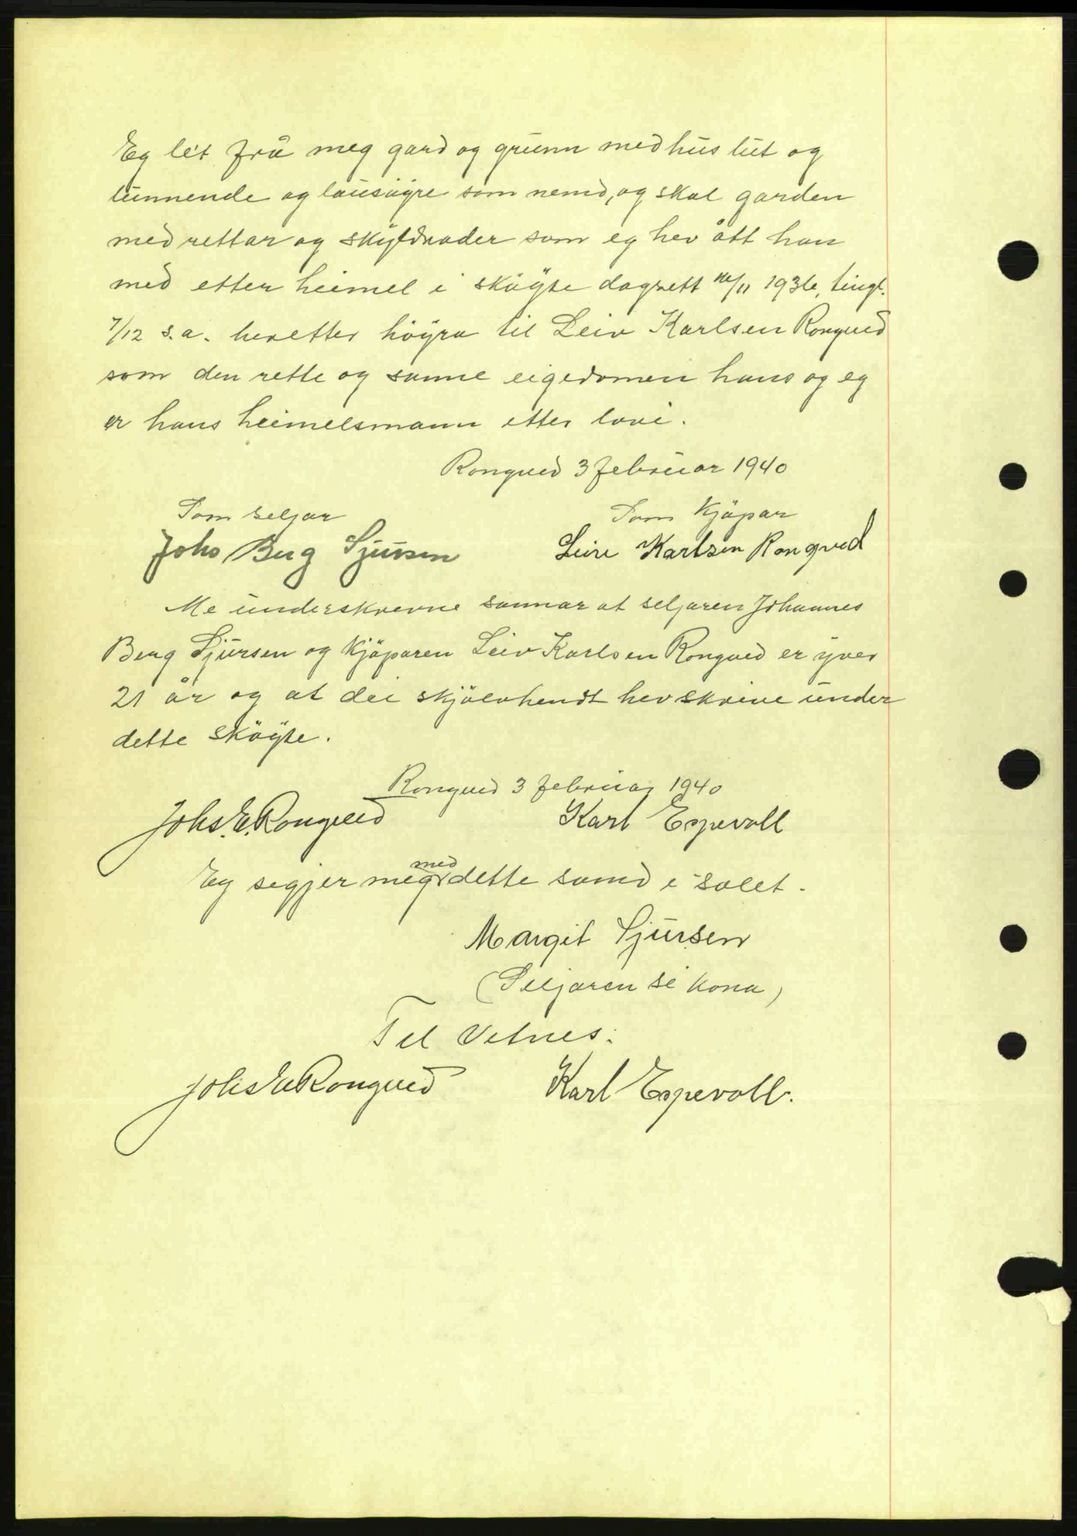 Eg let frå meg gard og grunn med hus lut og
lunnende og lausøyre som nemd, og skal garden
med rettar og skyldnader som eg hev ått han
med etter heimel i skøyte dagsett /11 1936, tingl.
7/12 s.a. heretter høyra til Leiv Karlsen Rongved
som den rette og sanne eigedomen hans og eg
er hans heimelsmann etter lovi.
Rongved 3 februar 1940
Som seljar
Som Kjøpar
Johs Berg Sjursen
Leiv Karlsen Rongved
Me underskrevne sannar at seljaren Johannes
Berg Sjursen og Kjøparen Leiv Karlsen Rongved er yver
21 år og at dei skjølvhendt hev skrive under
dette skøyte.
Rongved 3 februar 1940
Johs. E. Rongved
Karl Espevoll
Eg segjer meg med dette samd i salet.
Margit Sjursen
(Seljaren si kona)
Til Vitnes:
Johs E Rongved
Karl Espevoll.